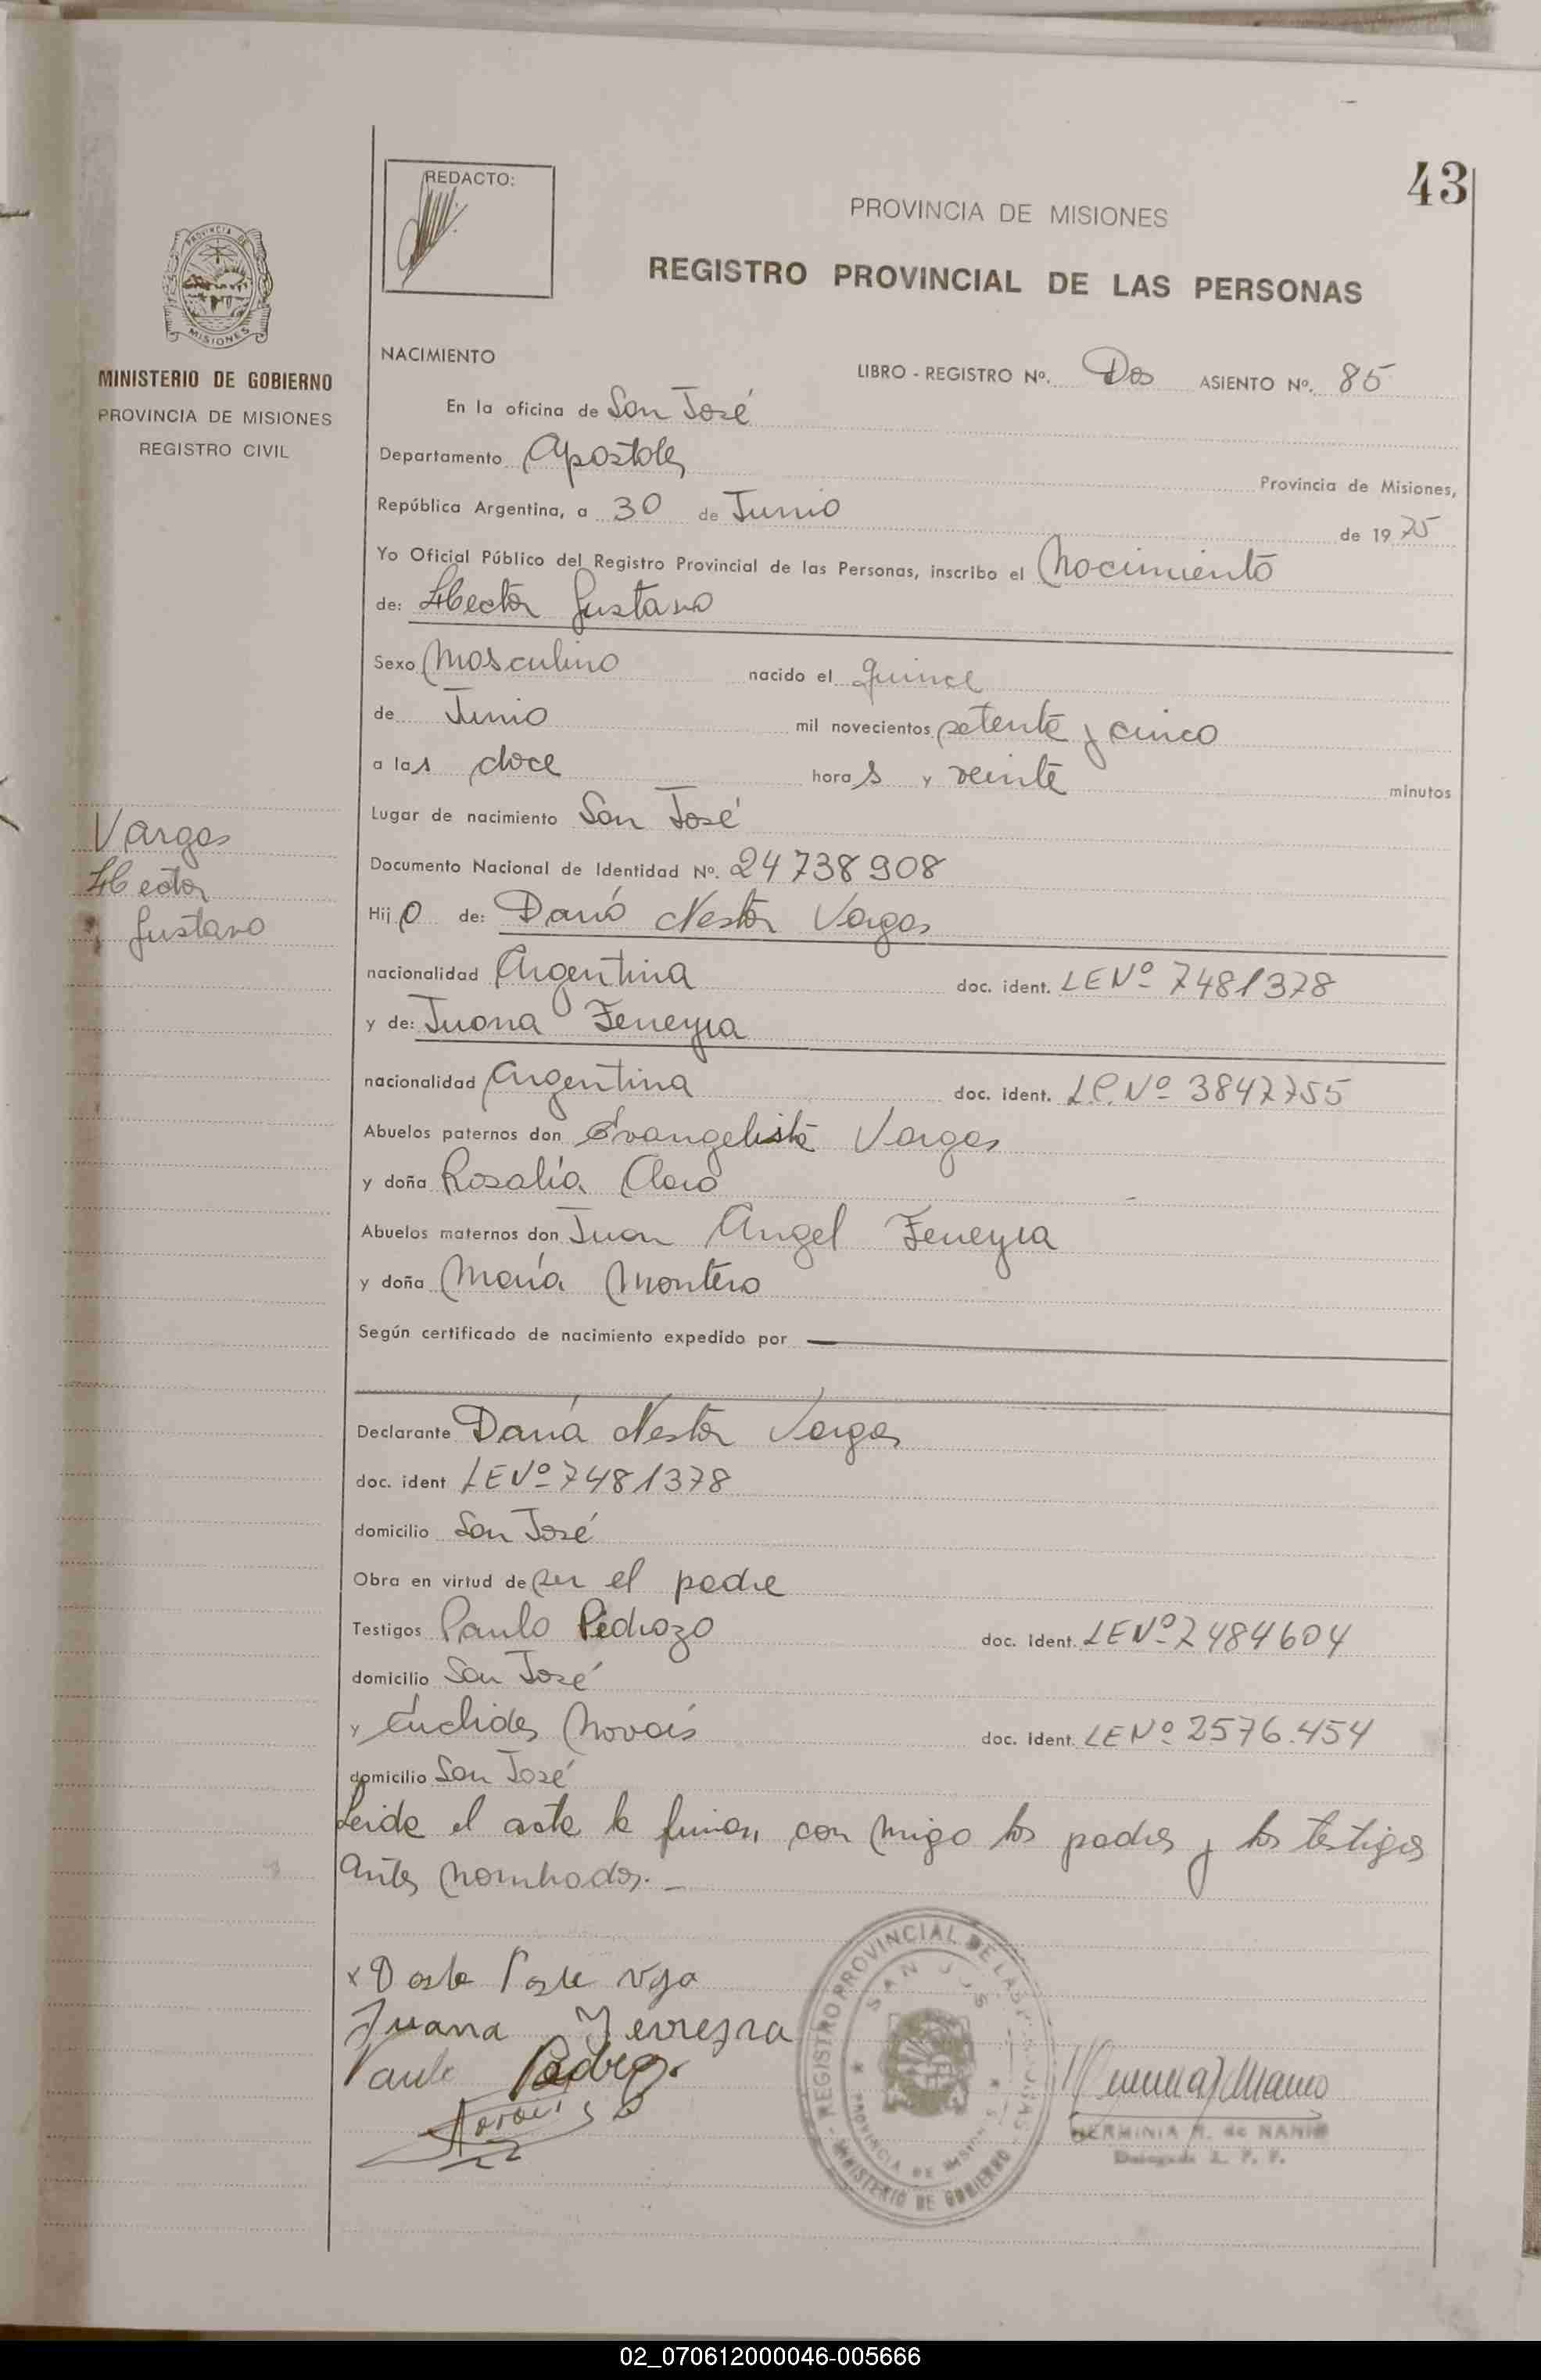 43
REDACTO:
PROVINCIA DE MISIONES
REGISTRO PROVINCIAL DE LAS PERSONAS
PROVINCIA DE
MISIONES
MINISTERIO DE GOBIERNO
PROVINCIA DE MISIONES
REGISTRO CIVIL
Vargas
Hector
Gustavo
NACIMIENTO
LIBRO - REGISTRO Nº. Dos ASIENTO Nº. 85
En la oficina de San José
Departamento Apostoles Provincia de Misiones,
República Argentina, a 30 de Junio de 1975
Yo Oficial Público del Registro Provincial de las Personas, inscribo el Nacimiento
de: Hector Gustavo
Sexo Masculino nacido el quince
de Junio mil novecientos setenta y cinco
a las doce horas y veinte minutos
Lugar de nacimiento San José
Documento Nacional de Identidad Nº. 24738908
Hijo de: Darió Nestor Vargas
nacionalidad Argentina doc. ident. LE Nº 7481378
y de: Juana Ferreyra
nacionalidad Argentina doc. ident. L.C. Nº 3847755
Abuelos paternos don Evangelista Vargas
y doña Rosalía Claro
Abuelos maternos don Juan Angel Ferreyra
y doña María Montero
Según certificado de nacimiento expedido por
Declarante Darió Nestor Vargas
doc. ident LE Nº 7481378
domicilio San José
Obra en virtud de ser el padre
Testigos Paulo Pedrozo doc. ident. LE Nº 7484604
domicilio San José
y Euclides Novais doc. ident. LE Nº 2576.454
domicilio San José
Leida el acta la firman con migo los padres y los testigos
antes nombrados. _
Juana Ferreyra
REGISTRO PROVINCIAL DE LAS PERSONAS
SAN JOSE
PROVINCIA DE MISIONES
MINISTERIO DE GOBIERNO
HERMINIA R. de NANIO
02_070612000046-005666